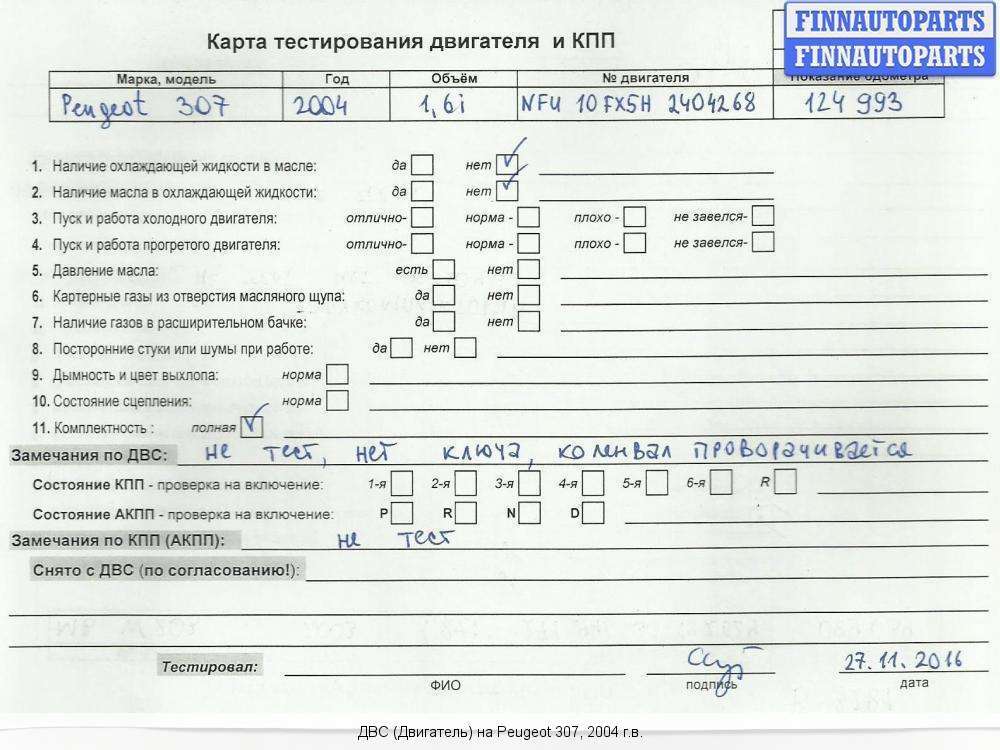 FINNAUTOPARTS
FINNAUTOPARTS
Карта тестирования двигателя и КПП
Марка, модель Год Объём № двигателя Показание одометра
Peugeot 307 2004 1,6i NFU 10FX5H 2404268 124 993
1. Наличие охлаждающей жидкости в масле: да нет
2. Наличие масла в охлаждающей жидкости: да нет
3. Пуск и работа холодного двигателя: отлично- норма - плохо - не завелся-
4. Пуск и работа прогретого двигателя: отлично- норма - плохо - не завелся-
5. Давление масла: есть нет
6. Картерные газы из отверстия масляного щупа: да нет
7. Наличие газов в расширительном бачке: да нет
8. Посторонние стуки или шумы при работе: да нет
9. Дымность и цвет выхлопа: норма
10. Состояние сцепления: норма
11. Комплектность : полная
Замечания по ДВС: не тест, нет ключа, коленвал проворачивается
Состояние КПП - проверка на включение: 1-я 2-я 3-я 4-я 5-я 6-я R
Состояние АКПП - проверка на включение: P R N D
Замечания по КПП (АКПП): не тест
Снято с ДВС (по согласованию!):
Тестировал: 27.11.2016
ФИО подпись дата
ДВС (Двигатель) на Peugeot 307, 2004 г.в.